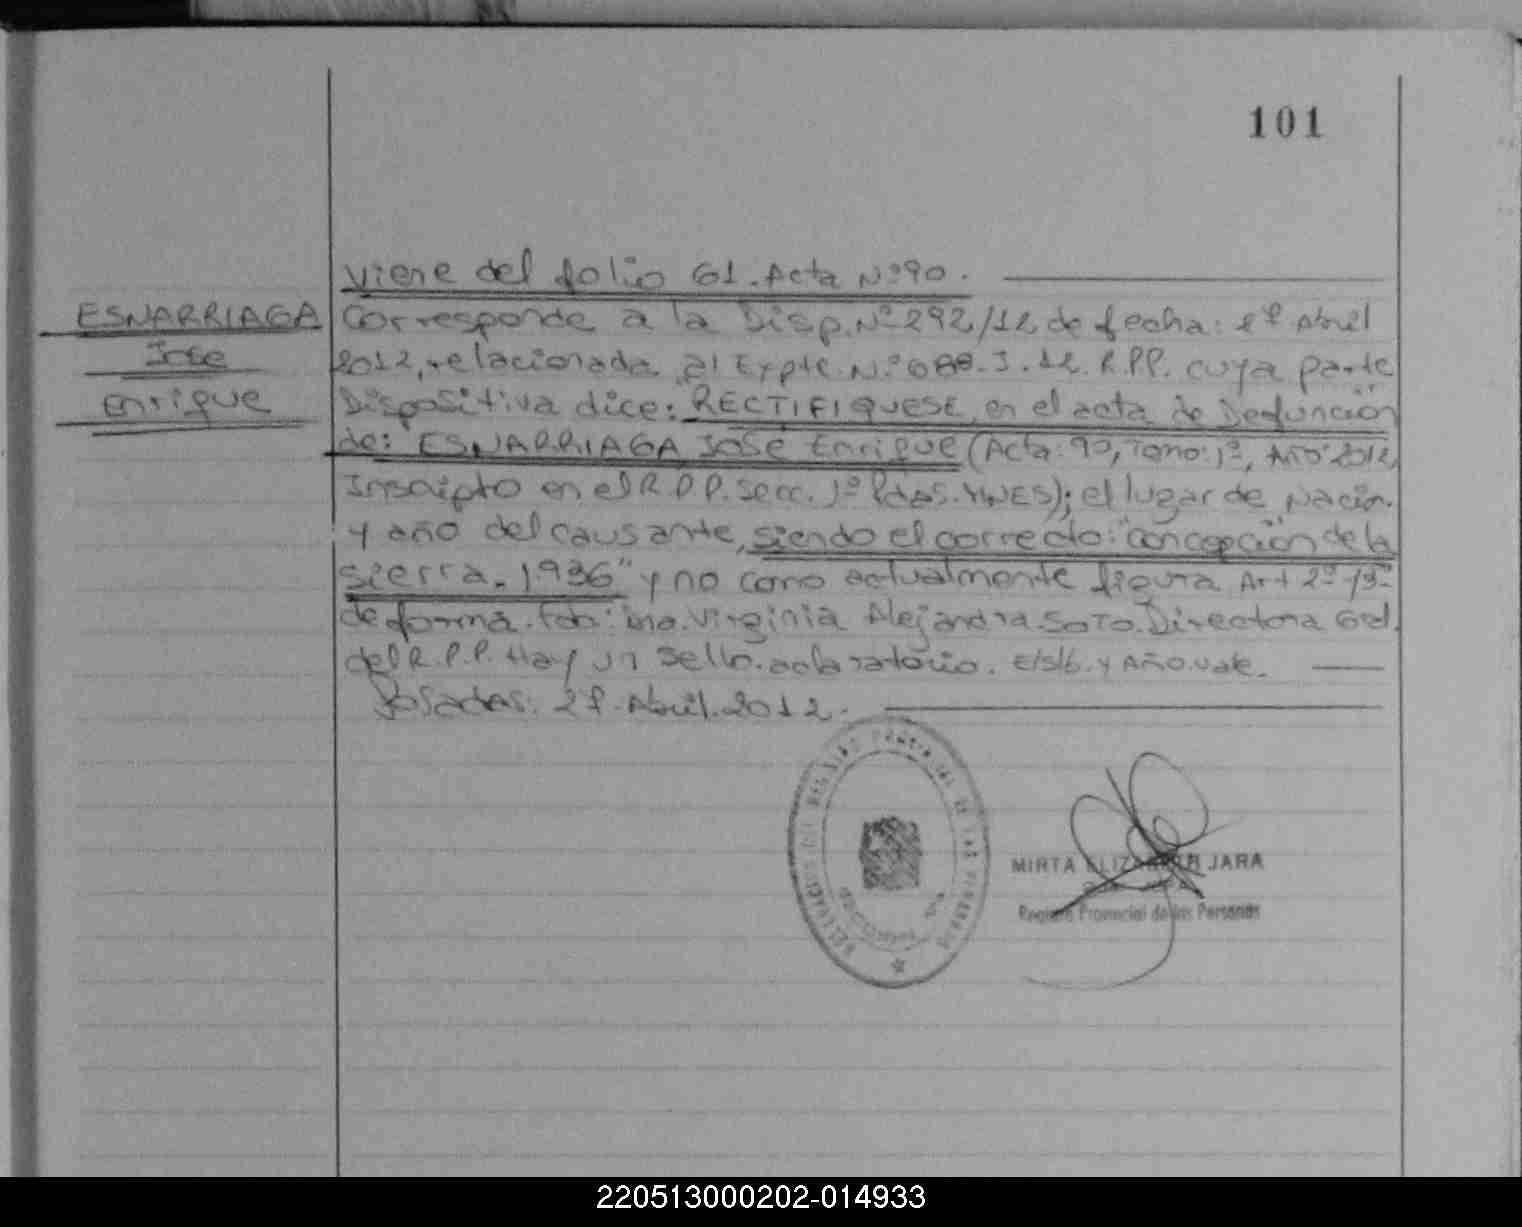 101
Viene del folio 61. Acta Nº 90.
ESNARRIAGA
Jose
Enrique
Corresponde a la Disp. Nº 292/12 de fecha: Abril
2012, relacionada al Expte. Nº J. 12. R.P.P. cuya parte
Dispositiva dice: RECTIFIQUESE, en el acta de Defunción
de: ESNARRIAGA José Enrique (Acta: 90, Tomo: 1º, Año 2012,
Inscripto en el R.P.P. Secc. 1º Pdas. MNES); el lugar de Nacim.
y año del causante, siendo el correcto: "Concepción de la
Sierra. 1.936" y no como actualmente figura Art 2º y 3º
de forma. Fdo: Virginia Alejandra SOTO. Directora Gral.
del R.P.P. Hay un Sello. aclaratorio. E/S/b. y Año. vale.
Posadas: Abril. 2012.
MIRTA JARA
Registro Provincial de las Personas
220513000202-014933